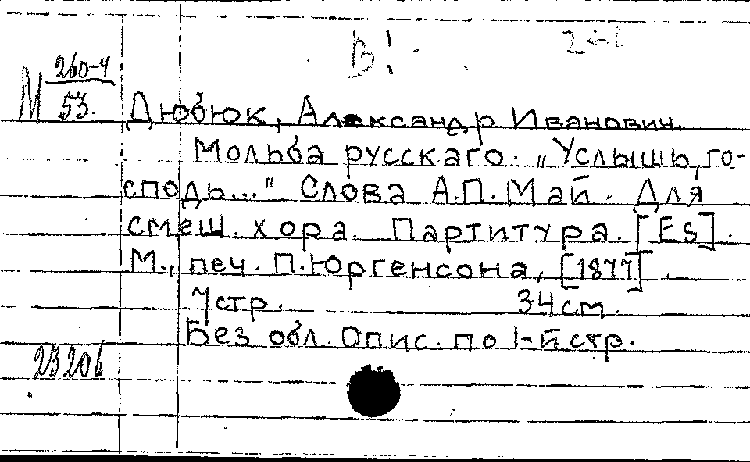 В!
М 260-4
53.
Дюбюк, Александр Иванович.
Мольба русскаго. „Услышь, го-
сподь..." Слова А.П. Май. Для
смеш. хора. Партитура. [Es].
М., печ. П. Юргенсона, [1877].
7 стр. 34 см.
Без обл. Опис. по 1-й стр.
23206